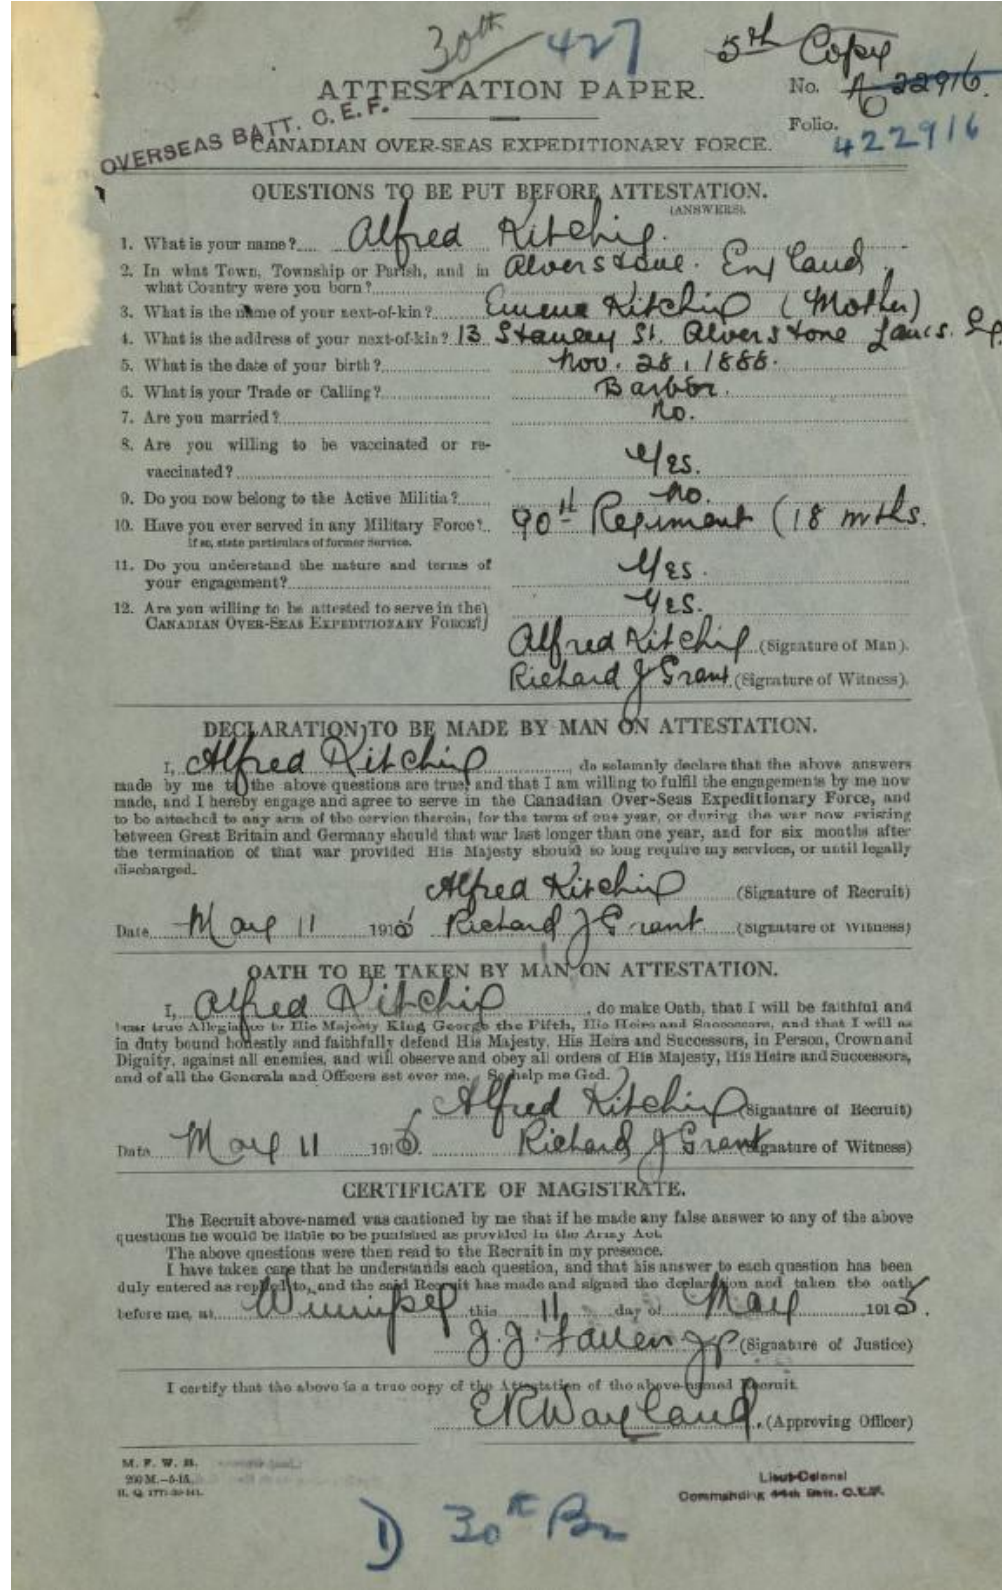 30th 427 5th Copy
ATTESTATION PAPER. No. A 22916.
OVERSEAS BATT. C.E.F. Folio. 422916
CANADIAN OVER-SEAS EXPEDITIONARY FORCE.
QUESTIONS TO BE PUT BEFORE ATTESTATION.
(ANSWERS).
1. What is your name? Alfred Kitchin.
2. In what Town, Township or Parish, and in what Country were you born? Alverstone. England.
3. What is the name of your next-of-kin? Kitchin (Mother)
4. What is the address of your next-of-kin? 13 Stanley St. Alverstone Lancs.
5. What is the date of your birth? Nov. 28, 1888.
6. What is your Trade or Calling? Barber.
7. Are you married? No.
8. Are you willing to be vaccinated or re-
vaccinated? Yes.
9. Do you now belong to the Active Militia? No.
10. Have you ever served in any Military Force? 90th Regiment (18 mths.
If so, state particulars of former Service.
11. Do you understand the nature and terms of
your engagement? Yes.
12. Are you willing to be attested to serve in the
CANADIAN OVER-SEAS EXPEDITIONARY FORCE? Yes.
Alfred Kitchin (Signature of Man).
Richard J Grant (Signature of Witness).
DECLARATION TO BE MADE BY MAN ON ATTESTATION.
I, Alfred Kitchin, do solemnly declare that the above answers
made by me to the above questions are true, and that I am willing to fulfil the engagements by me now
made, and I hereby engage and agree to serve in the Canadian Over-Seas Expeditionary Force, and
to be attached to any arm of the service therein, for the term of one year, or during the war now existing
between Great Britain and Germany should that war last longer than one year, and for six months after
the termination of that war provided His Majesty should so long require my services, or until legally
discharged.
Alfred Kitchin (Signature of Recruit)
Date May 11 1915 Richard J Grant (Signature of Witness)
OATH TO BE TAKEN BY MAN ON ATTESTATION.
I, Alfred Kitchin, do make Oath, that I will be faithful and
bear true Allegiance to His Majesty King George the Fifth, His Heirs and Successors, and that I will as
in duty bound honestly and faithfully defend His Majesty, His Heirs and Successors, in Person, Crown and
Dignity, against all enemies, and will observe and obey all orders of His Majesty, His Heirs and Successors,
and of all the Generals and Officers set over me. So help me God.
Alfred Kitchin (Signature of Recruit)
Date May 11 1915. Richard J Grant (Signature of Witness)
CERTIFICATE OF MAGISTRATE.
The Recruit above-named was cautioned by me that if he made any false answer to any of the above
questions he would be liable to be punished as provided in the Army Act.
The above questions were then read to the Recruit in my presence.
I have taken care that he understands each question, and that his answer to each question has been
duly entered as replied to, and the said Recruit has made and signed the declaration and taken the oath
before me, at Winnipeg this 11 day of May 1915.
J.J. JP (Signature of Justice)
I certify that the above is a true copy of the Attestation of the above-named Recruit.
ERWayland. (Approving Officer)
M. F. W. 
200 M.–5-15.
H. Q. 1772-39-841.
Lieut-Colonel
Commanding 44th Batt. C.E.F.
D 30th Bn